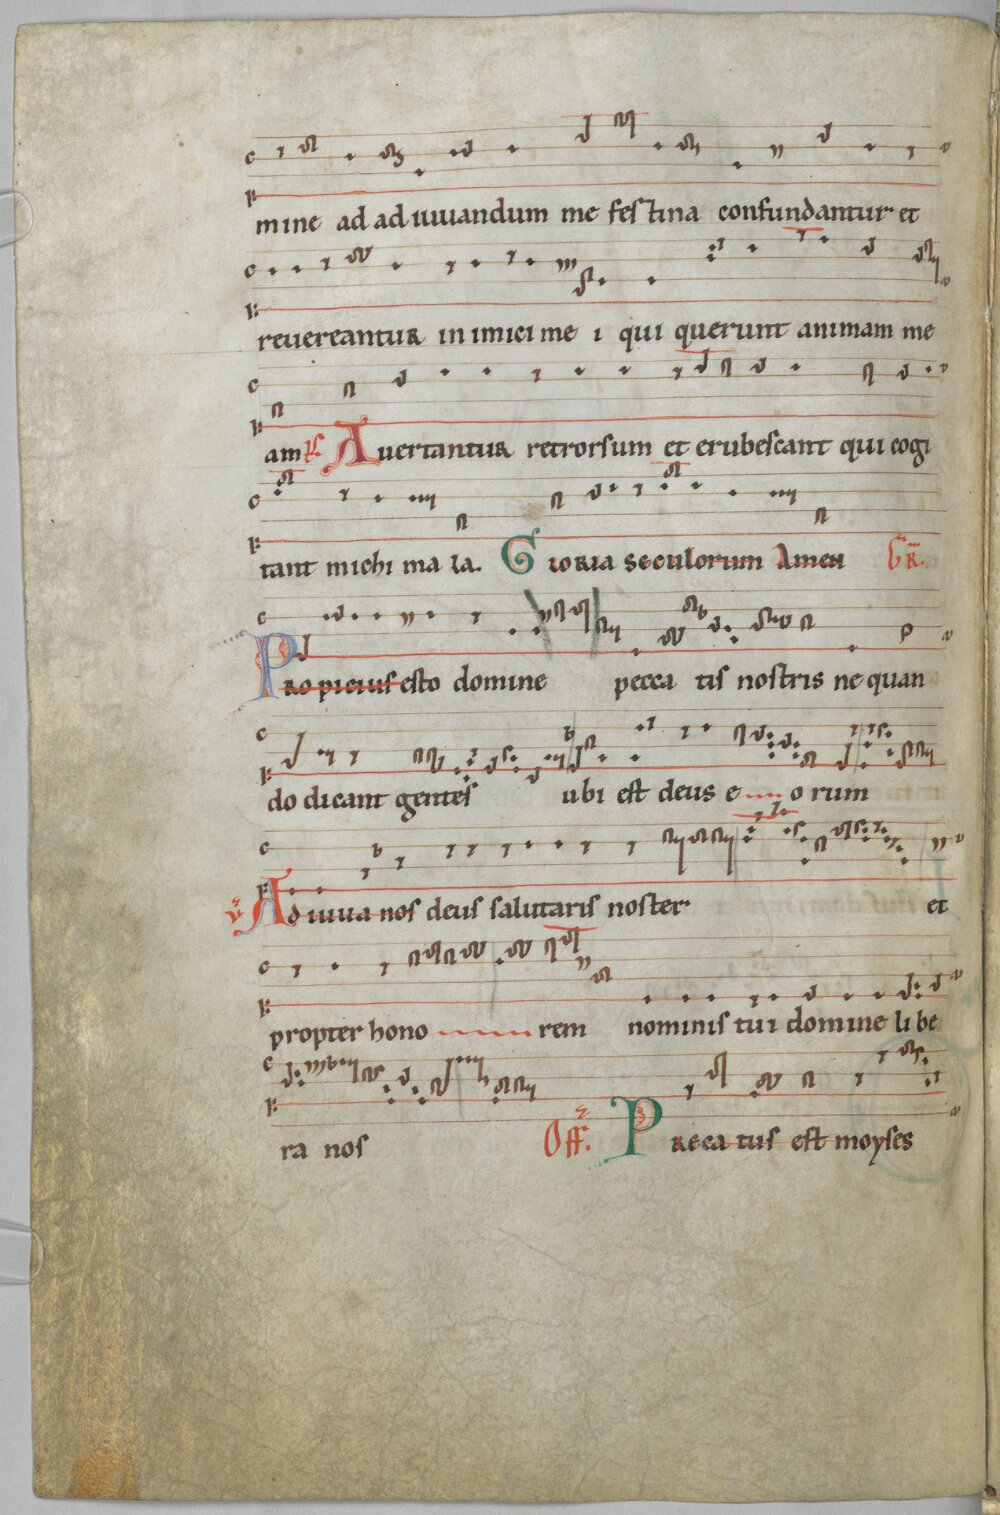 mine ad ad iuuandum me festina confundantur et
reuereantur in imici me i qui querunt animam me
am Ps Auertantur retrorsum et erubescant qui cogi
tant michi ma la. Gloria seculorum Amen Gr.
Propicius esto domine pecca tis nostris ne quan
do dicant gentes ubi est deus e o rum
V Ad iuua nos deus salutaris noster et
propter hono rem nominis tui domine li be
ra nos Off. Preca tus est moyses